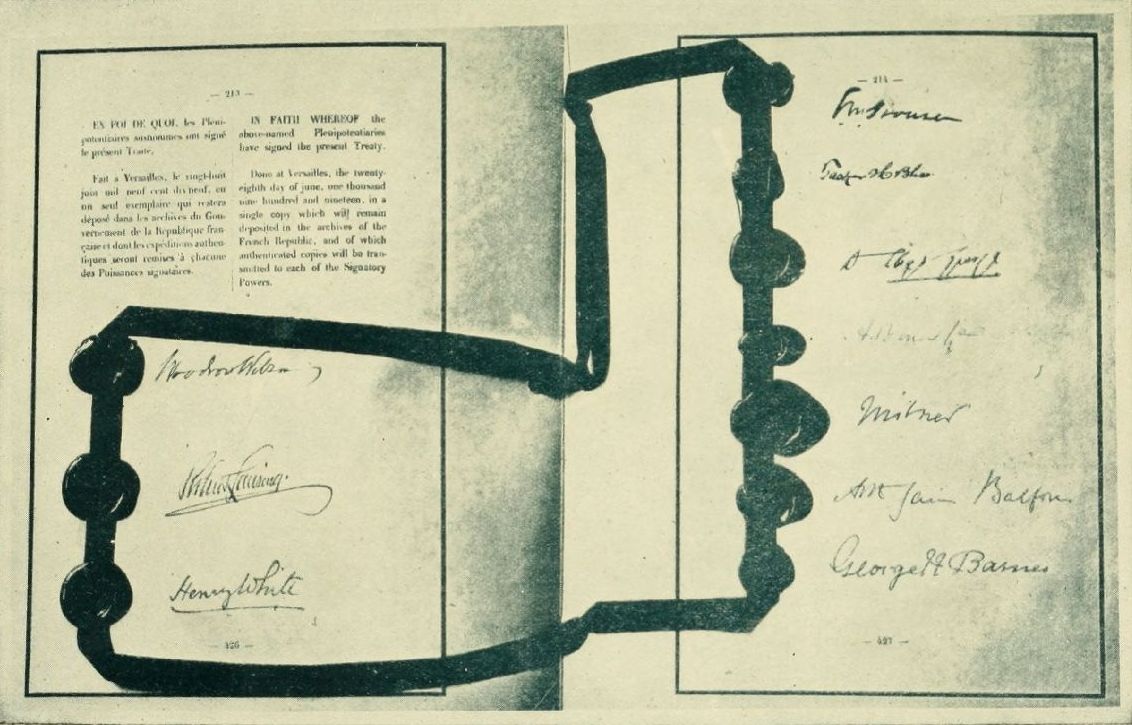 — 213 —
EN FOI DE QUOI, les Pléni-
potentiaires susnommés ont signé
le présent Traité.
Fait à Versailles, le vingt-huit
juin mil neuf cent dix-neuf, en
un seul exemplaire qui restera
déposé dans les archives du Gou-
vernement de la République fran-
çaise et dont les expéditions authen-
tiques seront remises à chacune
des Puissances signataires.
IN FAITH WHEREOF the
above-named Plenipotentiaries
have signed the present Treaty.
Done at Versailles, the twenty-
eighth day of june, one thousand
nine hundred and nineteen, in a
single copy which will remain
deposited in the archives of the
French Republic, and of which
authenticated copies will be trans-
mitted to each of the Signatory
Powers.
Woodrow Wilson
Robert Lansing.
Henry White
— 426 —
— 214 —
Milner
Arthur James Balfour
George N Barnes
— 427 —